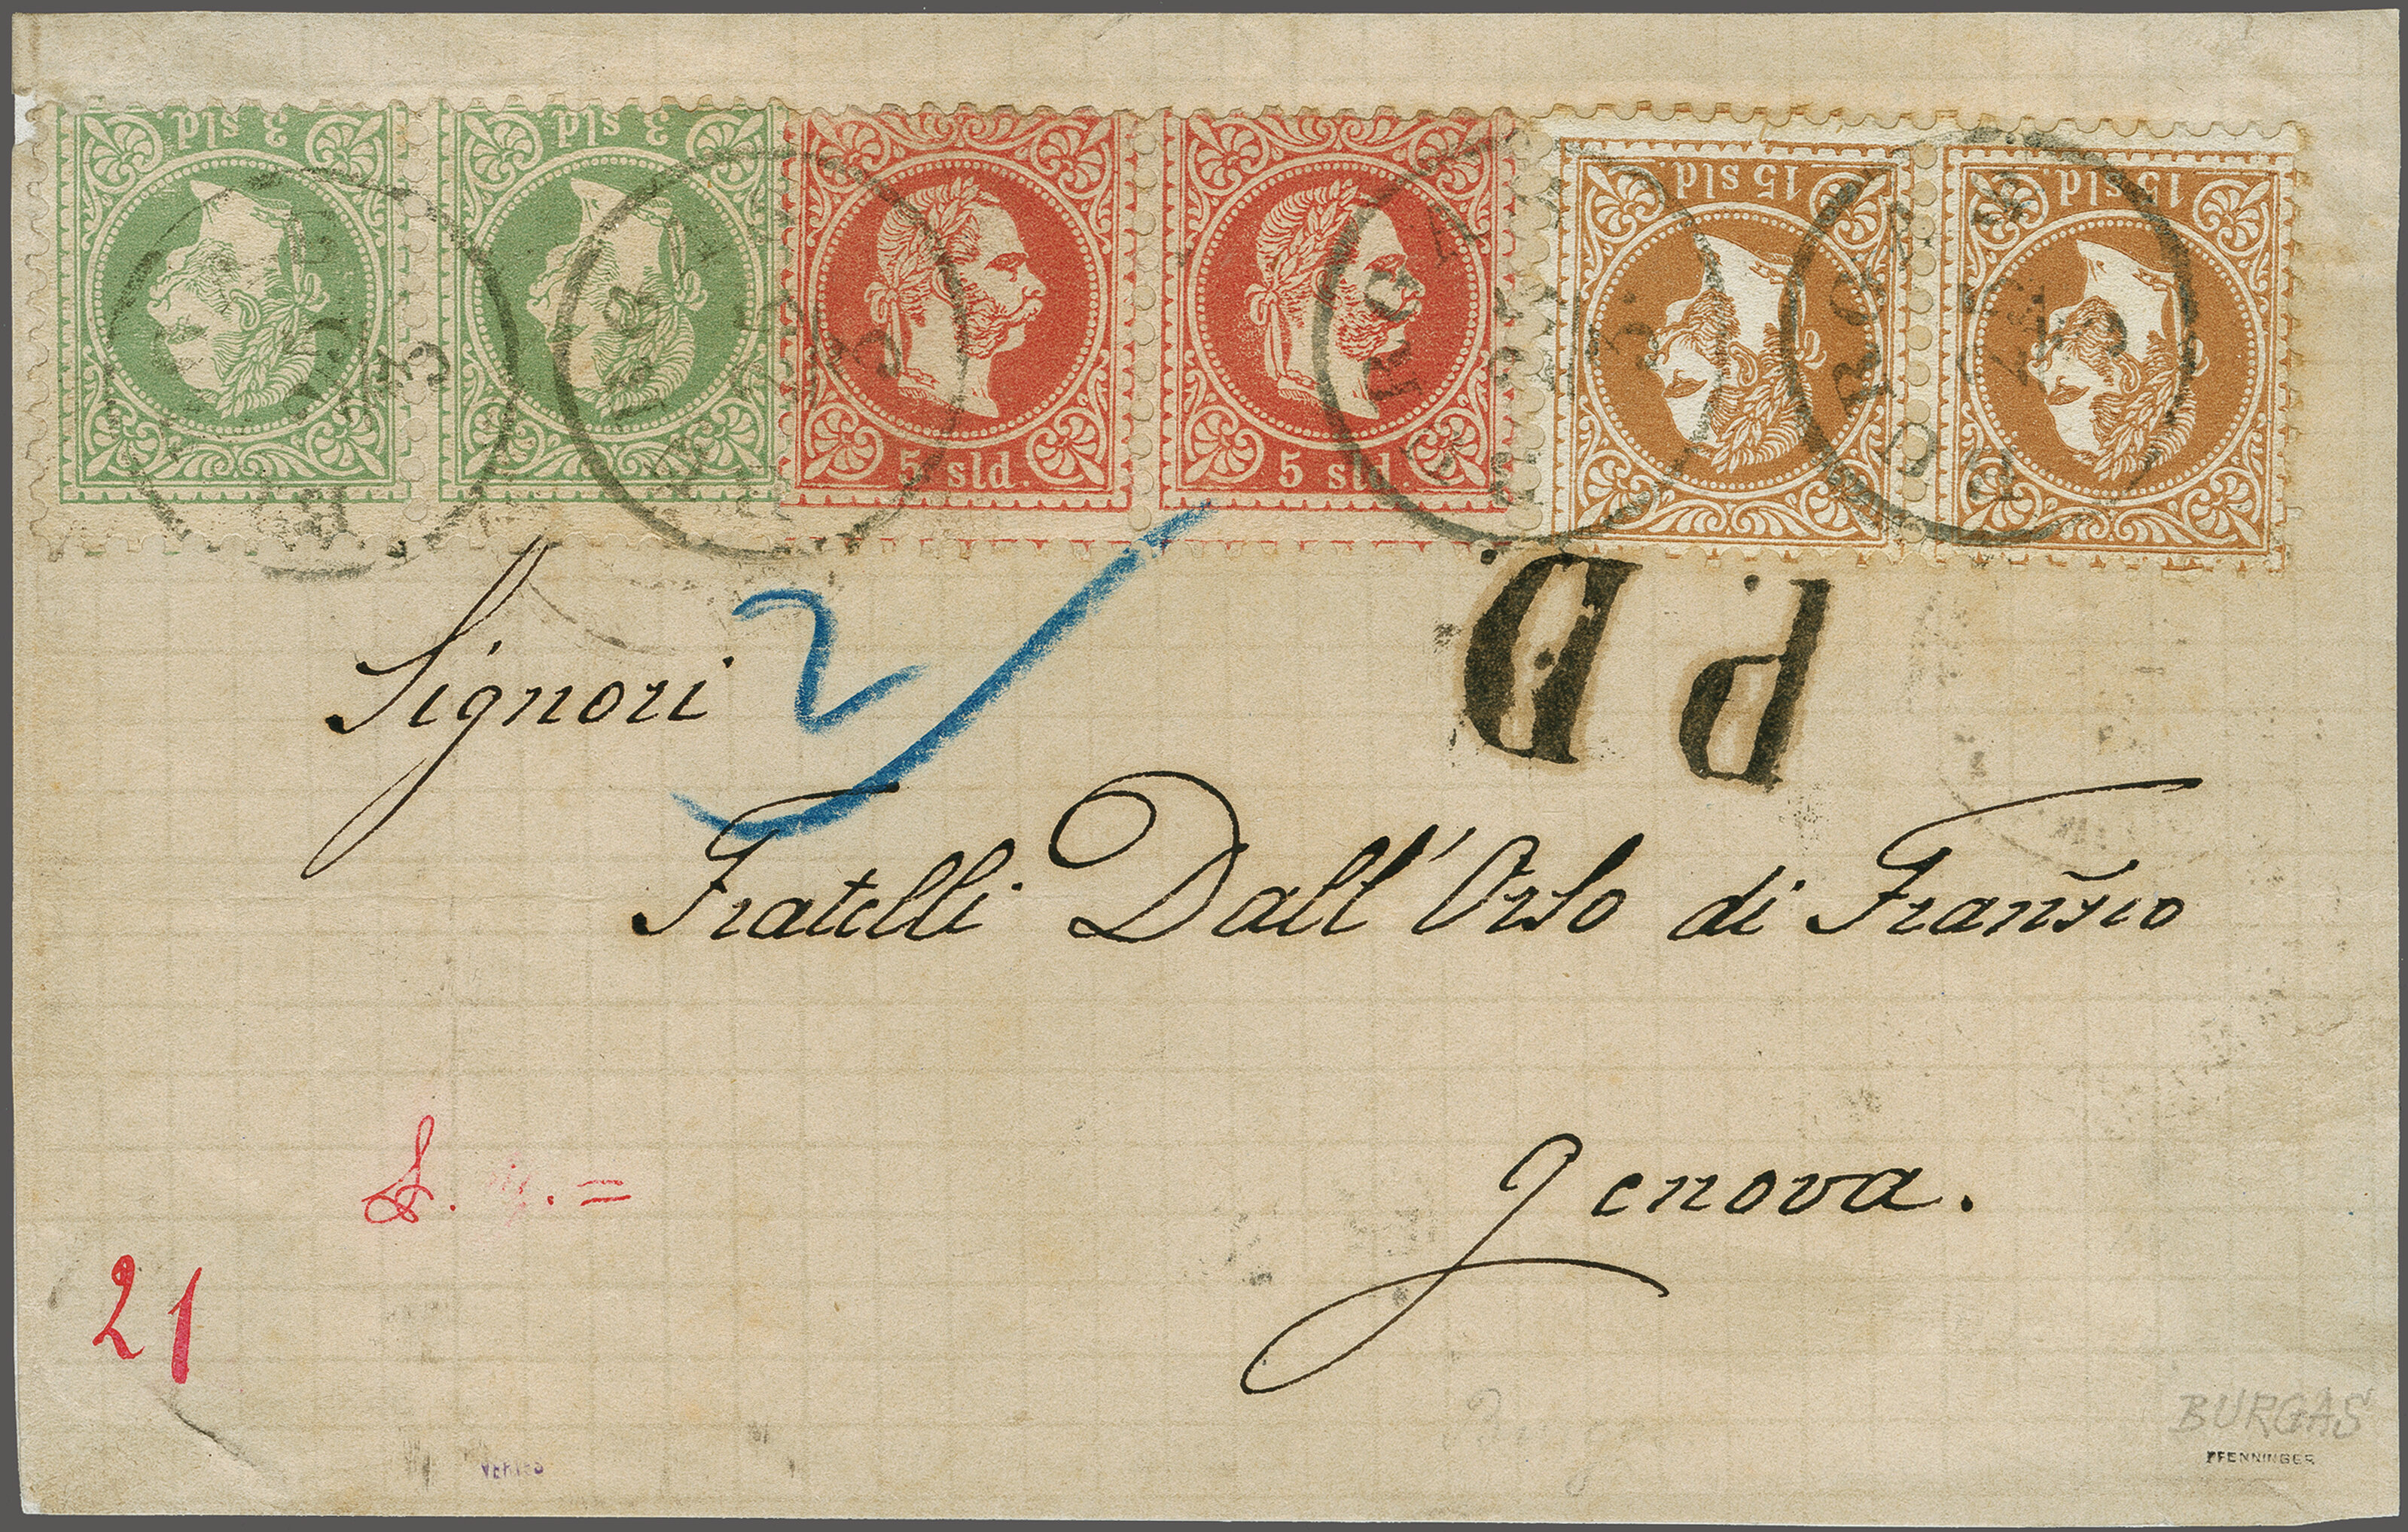 3 sld. 3 sld. 5 sld. 5 sld. 15 sld. 15 sld.
P.D.
2
Signori
Fratelli Dall'Orso di Fransco
Genova.
21
BURGAS
VERTES
PFENNINGER